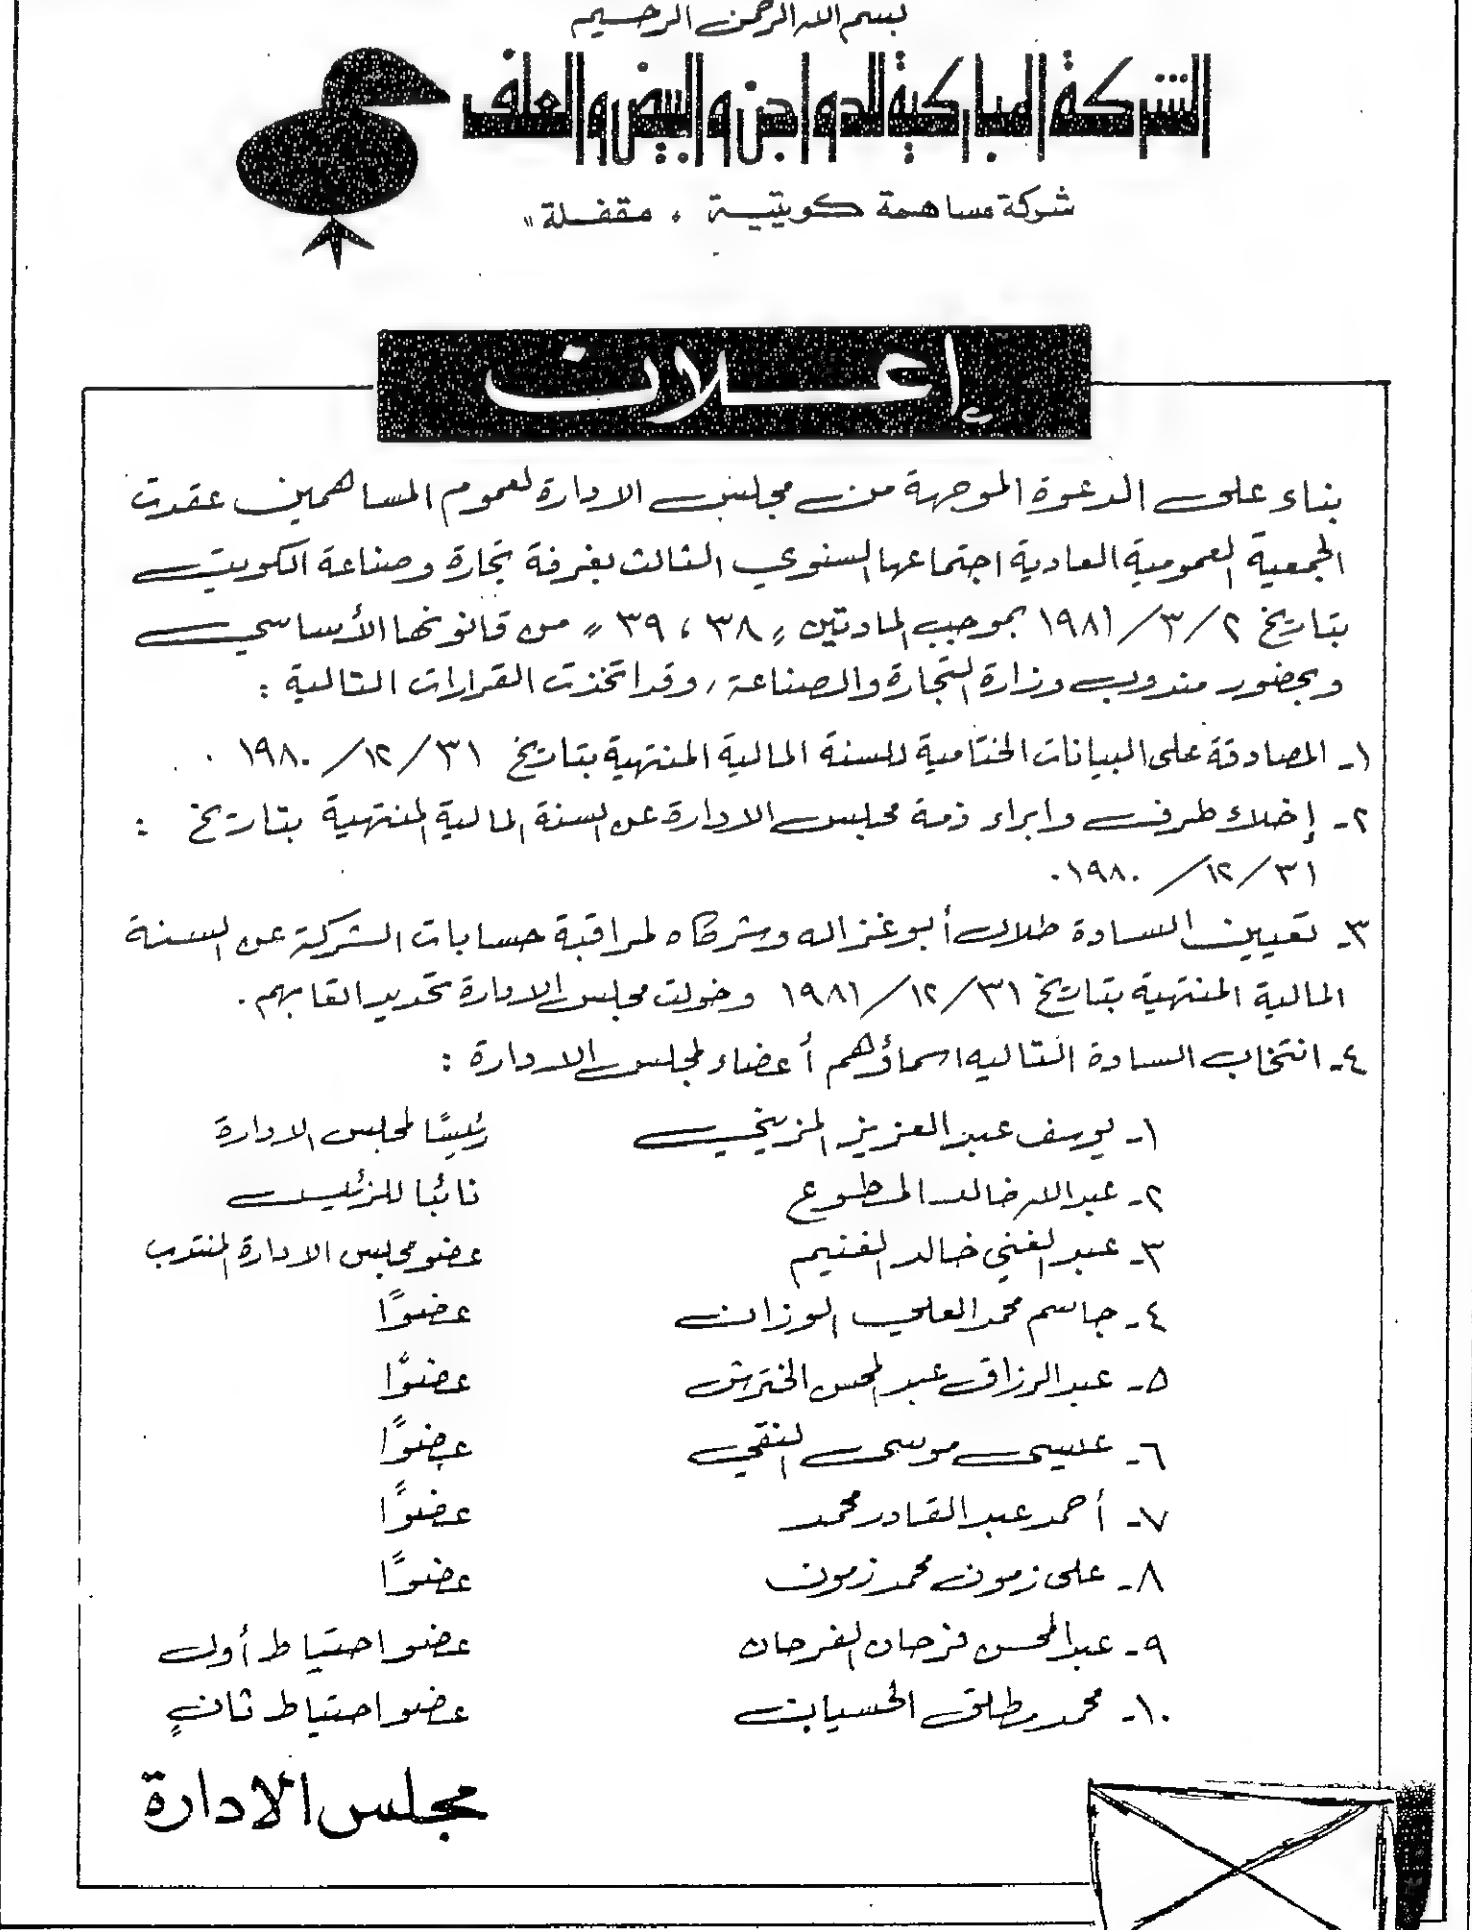 بسم الله الرحمن الرحيم
الشركة المباركية للدواجن والبيض والعلف
شركة مساهمة كويتية " مقفلة "
إعلان
بناء على الدعوة الموجهة من مجلس الادارة لعموم المساهمين عقدت
الجمعية العمومية العادية اجتماعها السنوي الثالث بغرفة تجارة وصناعة الكويت
بتاريخ ٢/٣/١٩٨١ بموجب المادتين " ٣٨ ، ٣٩ " من قانونها الأساسي
وبحضور مندوب وزارة التجارة والصناعة ، وقد اتخذت القرارات التالية :
١- المصادقة على البيانات الختامية للسنة المالية المنتهية بتاريخ ٣١/١٢/١٩٨٠ .
٢- إخلاء طرف وابراء ذمة مجلس الادارة عن السنة المالية المنتهية بتاريخ :
٣١/١٢/١٩٨٠.
٣- تعيين السادة طلال أبو غزاله وشركاه لمراقبة حسابات الشركة عن السنة
المالية المنتهية بتاريخ ٣١/١٢/١٩٨١ وخولت مجلس الادارة تحديد اتعابهم .
٤- انتخاب السادة التاليه اسماؤهم أعضاء لمجلس الادارة :
١- يوسف عبد العزيز المزيني رئيسًا لمجلس الادارة
٢- عبد الله خالد المطوع نائبا للرئيس
٣- عبد الغني خالد الغنيم عضو مجلس الادارة المنتدب
٤- جاسم محمد العلي الوزان عضوًا
٥- عبد الرزاق عبد المحسن الخترش عضوًا
٦- عيسى موسى النقي عضوًا
٧- أحمد عبد القادر محمد عضوًا
٨- على زمون محمد زمون عضوًا
٩- عبد المحسن فرحان الفرحان عضو احتياط أول
١٠- محمد مطلق الحسيان عضو احتياط ثانٍ
مجلس الادارة